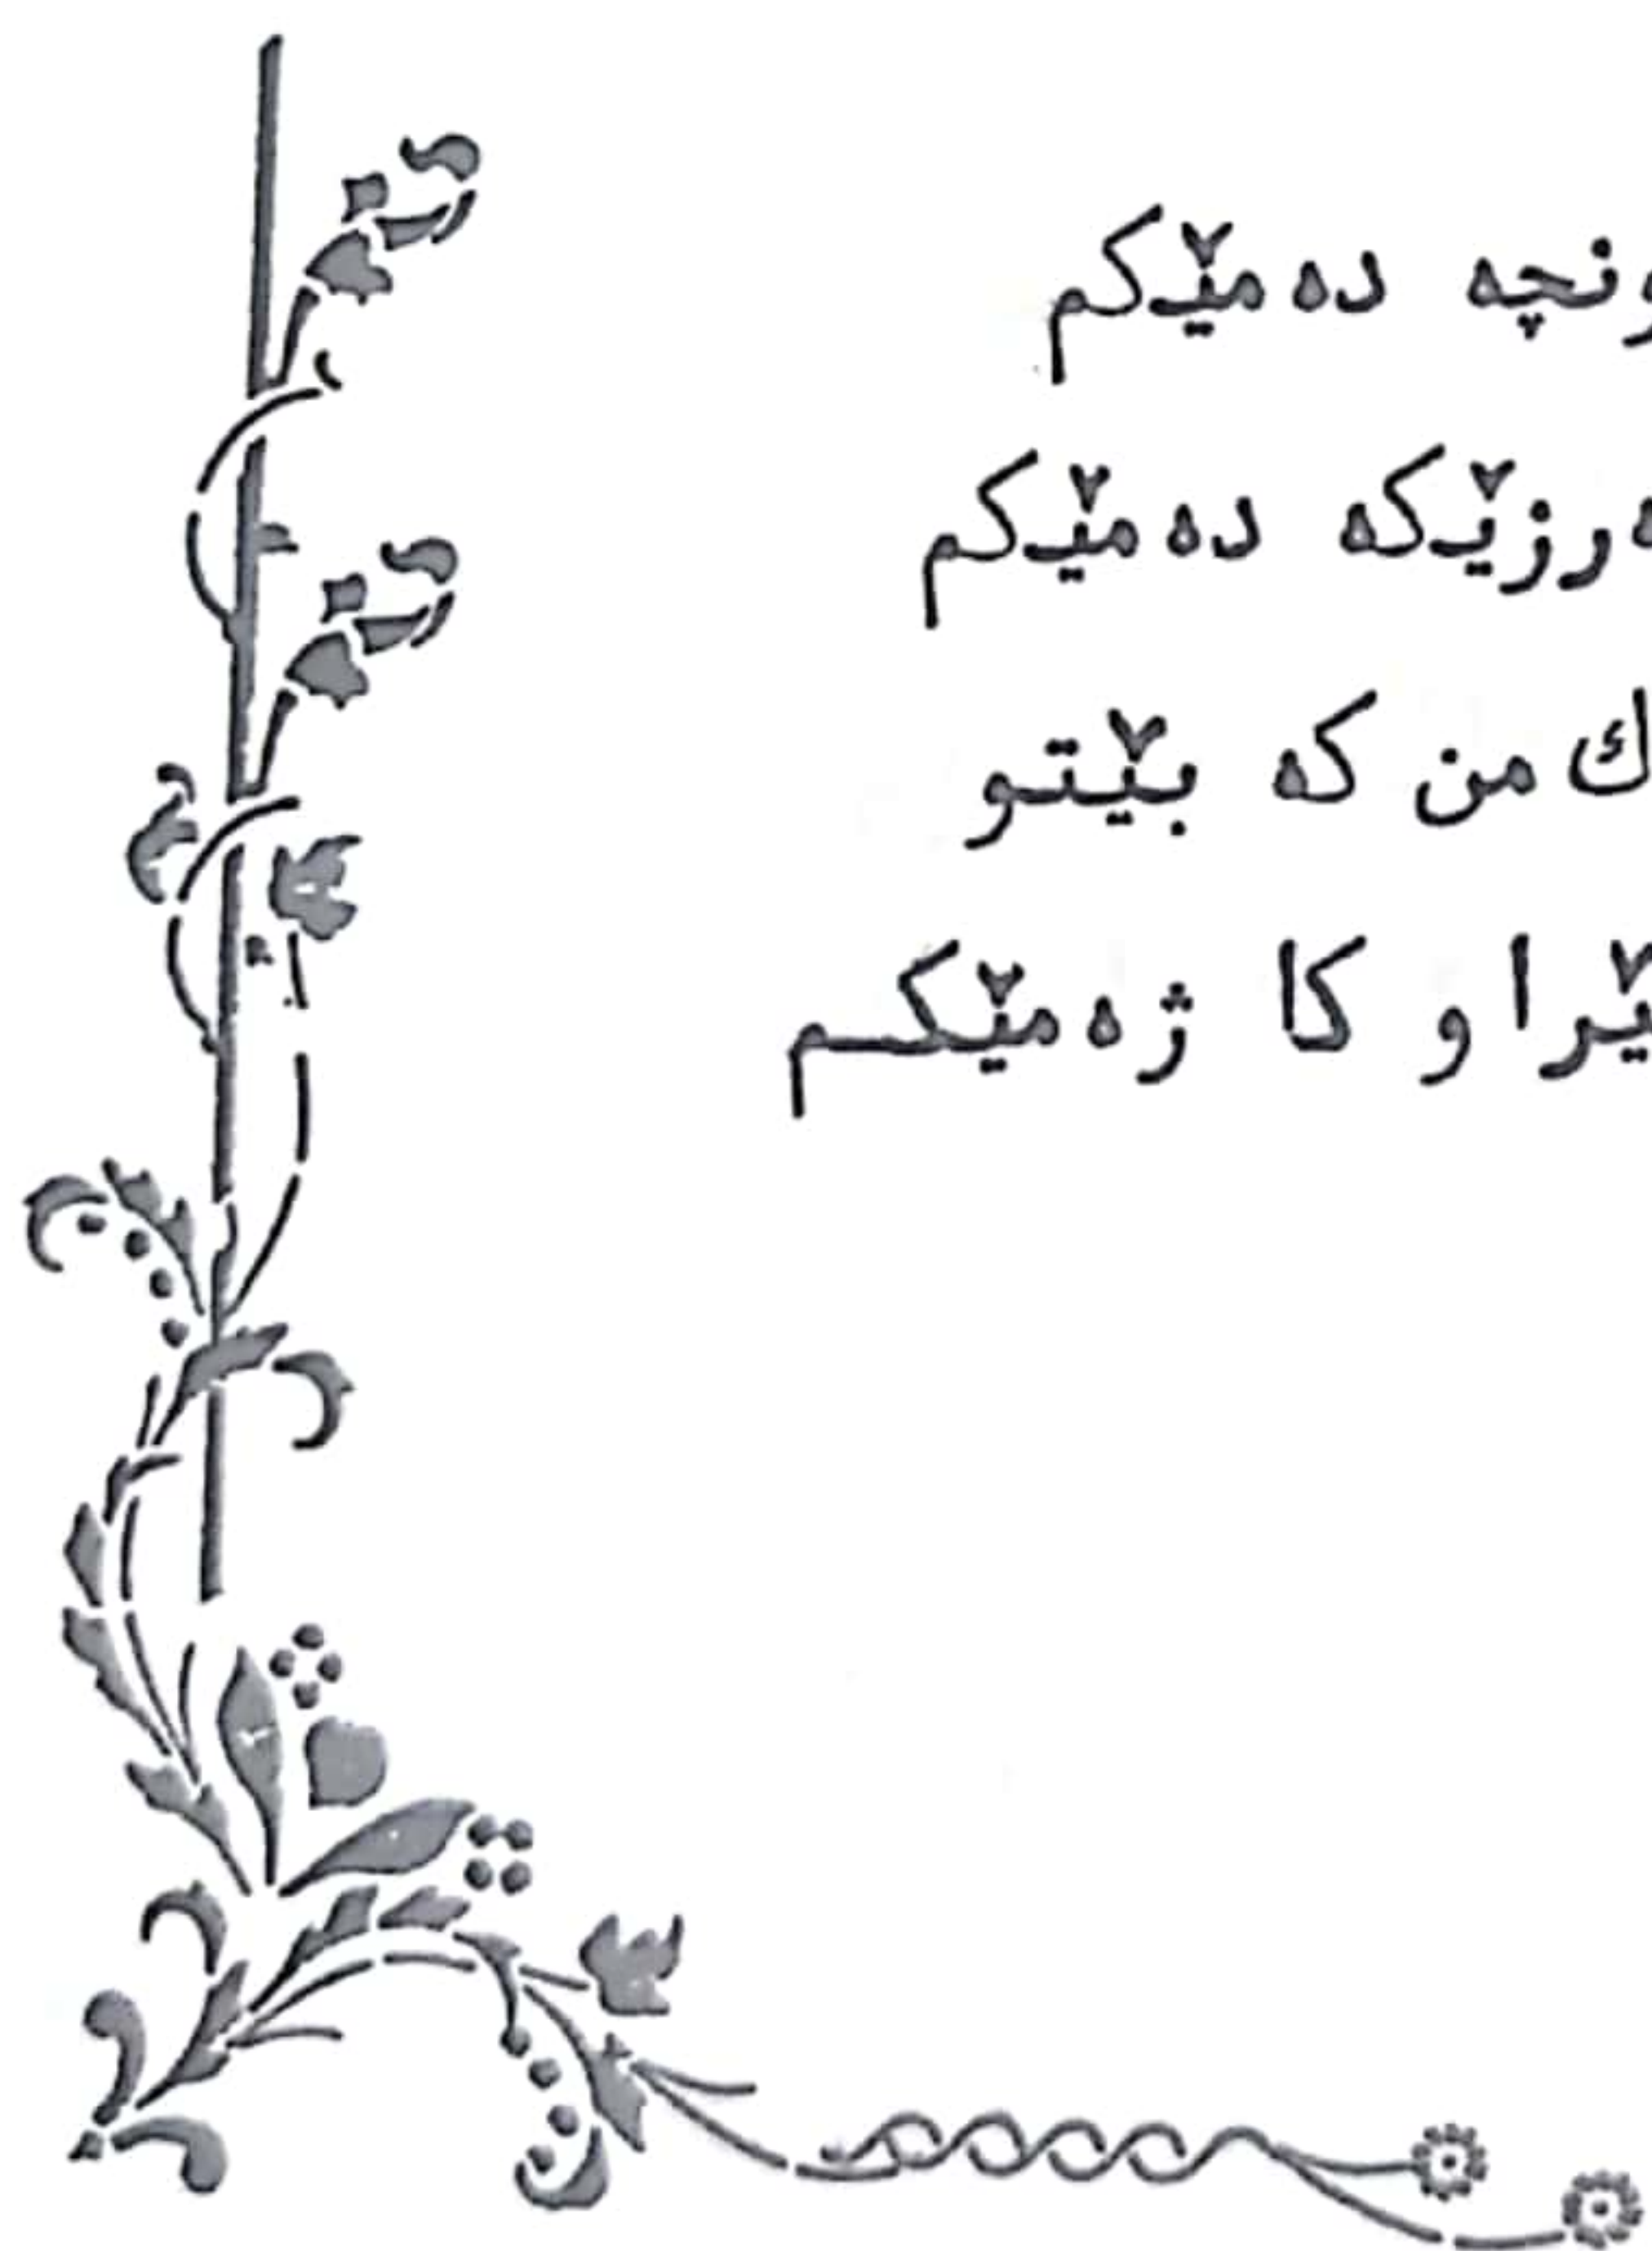 ونچه دەمێکم
ەرزێکە دەمێکم
ك من كە بێتو
ێرا و كا ژەمێکم